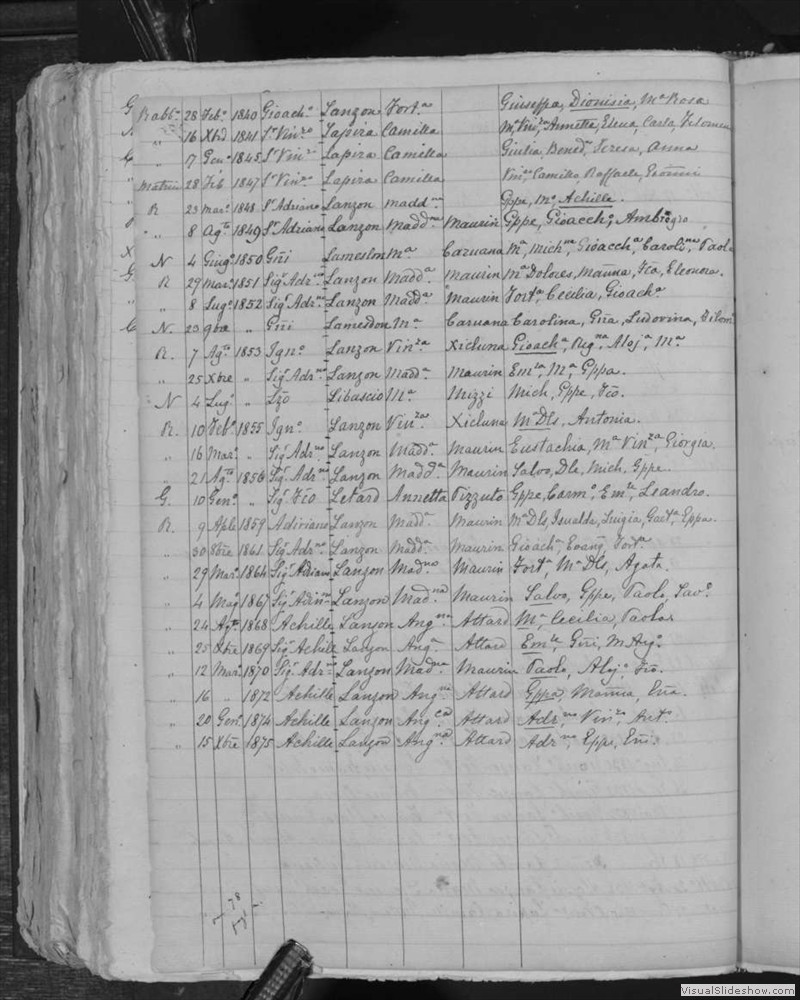 G Rabb.º 28 Feb.º 1840 Gioach.º Lanzon Fort.ª Giuseppa, Dionisia, M.ª Rosa
" 16 Xbre 1841 S.r Vin.zo Lapira Camilla M.ª Vin.za, Annetta, Elena, Carla, Filomena
" 17 Gen.º 1845 S.r Vin.z Lapira Camilla Giulia, Bened.ª, Teresa, Anna
Matrice 28 Feb 1847 S.r Vin.zo Lapira Camilla Vin.zo, Camillo, Raffaele, Giovanni
R 23 mar.º 1848 S.r Adriano Lanzon madd.na Gppe, M.ª Achille.
" 8 Ag.to 1849 S.r Adriano Lanzon Madd.na Maurin Gppe, Gioacch.º, Ambrogio
X N 4 Giug.º 1850 Gñi Lameslon M.ª Caruana M.ª, Mich.na, Gioacch.ª, Carolina, Paola
G R 29 Mar.º 1851 Sig.r Adr.no Lanzon Madd.ª Maurin M.ª Dolores, Marina, Fca, Eleonora.
" 8 Lug.º 1852 Sig.r Adr.no Lanzon Madd.ª Maurin Fort.ª, Cecilia, Gioach.ª
C N. 23 9bre " Gñi Lamesdon M.ª Caruana Carolina, Gña, Ludovina, Filom.ª
R. 7 Ag.to 1853 Ign.º Lanzon Vin.za Xicluna Gioach.ª, Reg.na, Aloj.ª, M.ª
" 25 Xbre " Sig.r Adr.no Lanzon Madd.ª Maurin Em.la, M.ª, Gppa.
N 4 Lug.º " Lzo Libascio M.ª Mizzi Mich, Gppe, Fco.
R. 10 Feb.º 1855 Ign.º Lanzon Vin.za Xicluna M.ª Dls, Antonia.
" 16 Mar.º " Sig.r Adr.no Lanzon Madd.ª Maurin Eustachia, M.ª Vin.za, Giorgia.
" 21 Ag.to 1856 Sig.r Adr.no Lanzon Madd.ª Maurin Salvo, Dle, Mich, Gppe.
G. 10 Gen.º " Sig.r Fco Letard Annetta Pizzuto Gppe, Carm.º, Em.le, Leandro.
R. 9 Aple 1859 Adriano Lanzon Madd.ª Maurin M.ª Dls, Isualda, Luigia, Gaet.ª, Gppa.
" 30 8bre 1861 Sig.r Adr.no Lanzon Madd.ª Maurin Gioach.ª, Evang, Fort.ª
" 29 Mar.º 1864 Sig.r Adriano Lanzon Mad.na Maurin Fort.ª M.ª Dls, Agata.
" 4 Mag.º 1867 Sig.r Adr.no Lanzon Mad.na Maurin Salvo, Gppe, Paolo, Sav.º
" 24 Ag.to 1868 Achille Lanzon Ang.na Attard M.ª Cecilia, Paola
" 25 Xbre 1869 Sig.r Achille Lanzon Ang.ª Attard Em.le, Gñi, M.Ang.º
" 12 Mar.º 1870 Sig.r Adr.no Lanzon Mad.na Maurin Paolo, Aloj.º, Fco.
" 16 " 1872 Achille Lanzon Ang.na Attard Gppa, Marina,
" 20 Gen.º 1874 Achille Lanzon Ang.ca Attard Adr.na, Vin.za, Ant.ª
" 15 Xbre 1875 Achille Lanzon Ang.na Attard Adr.na, Gppe,
78
VisualSlideshow.com